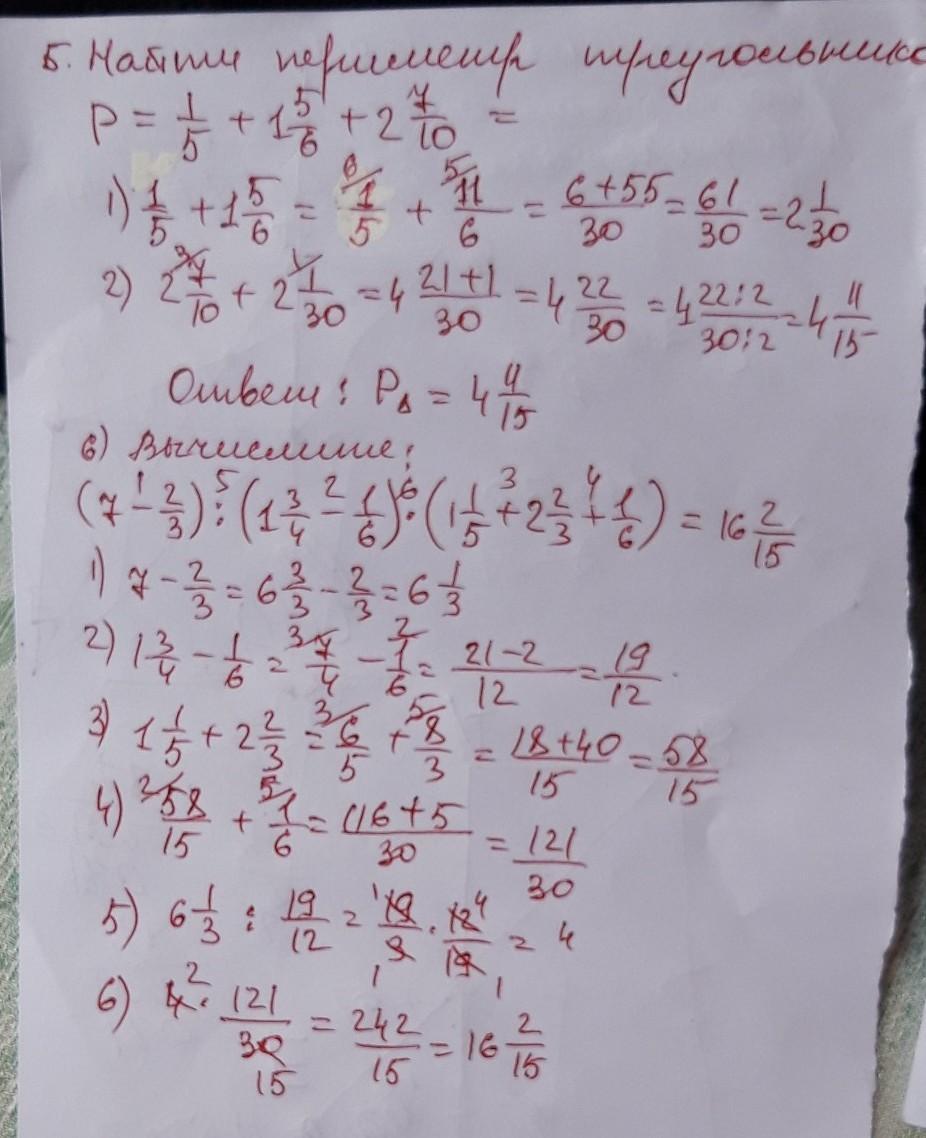 5. Найти периметр треугольника
P = 1/5 + 1 5/6 + 2 7/10 =
1) 1/5 + 1 5/6 = 6/ 1/5 + 5/ 11/6 = (6+55)/30 = 61/30 = 2 1/30
2) 2 3/ 7/10 + 2 1/ 1/30 = 4 (21+1)/30 = 4 22/30 = 4 (22:2)/(30:2) = 4 11/15
Ответ: P△ = 4 11/15
6) Вычислите:
(7 -¹ 2/3) :⁵ (1 3/4 -² 1/6) ·⁶ (1 1/5 +³ 2 2/3 +⁴ 1/6) = 16 2/15
1) 7 - 2/3 = 6 3/3 - 2/3 = 6 1/3
2) 1 3/4 - 1/6 = 3/ 7/4 - 2/ 1/6 = (21-2)/12 = 19/12
3) 1 1/5 + 2 2/3 = 3/ 6/5 + 5/ 8/3 = (18+40)/15 = 58/15
4) 2/ 58/15 + 5/ 1/6 = (116+5)/30 = 121/30
5) 6 1/3 : 19/12 = ¹19/3₁ · 12⁴/19₁ = 4
6) 4² · 121/30 15 = 242/15 = 16 2/15